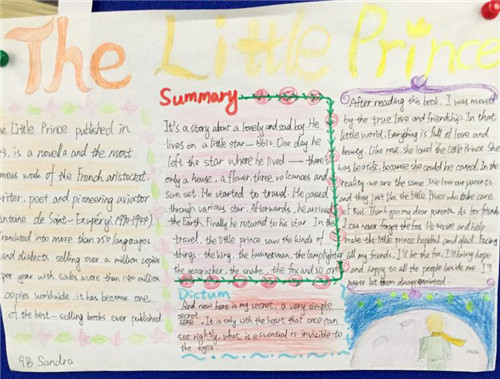 The Little Prince
Little Prince published in
is a novella and the most
work of the French aristocrat
writer, poet and pioneering aviator
Antoine de Saint-Exupéry
into more than 250 languages
and dialects selling over a million copies
per year with sales more than 140 million
copies worldwide, it has become one
of the best-selling books ever published.
9B Sandra
Summary
It's a story about a lovely and sad boy. He
lives on a little star—B612. One day he
left the star where he lived — there
only a house, a flower, three volcanoes and
sun set. He started to travel. He passed
through various star. Afterwards, he arrived
the Earth. Finally he returned to his star. In the
travel, the little prince saw the kinds of
things: the king, the businessman, the lamplighter
the geographer, the snake, the fox and so on
Dictum
And now here is my secret, a very simple
secret. It is only with the heart that once can
see rightly, what is essential is invisible to
the eyes.
After reading this book, I was moved
by the true love and friendship. In that
little world, Everything is full of love and
beauty. Like rose, she loved the little Prince. She
was because she could be cared. In the
reality, we are the same. We love our parents
and they just like the little Prince who take care
of Rose. Thank you my dear parents. As for friend
I can never forget the fox. He meet and help
make the little prince hopeful and glad. Facing
all my friends, I'd be the fox, I'll bring hope
and happy to all the people beside me. I'll
never let them disappointed.